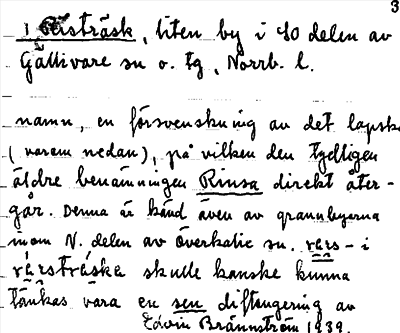 3
1 Reisträsk, liten by i SO delen av
Gällivare sn o. tg, Norrb. l.
namn, en försvenskning av det lapska
(varom nedan), på vilken den tydligen
äldre benämningen Rinsa direkt åter-
går. Denna är känd även av grannbyarna
inom N. delen av Överkalix sn. rɛis- i
skulle kanske kunna
tänkas vara en sen diftongering av
Edvin Brännström 1939.